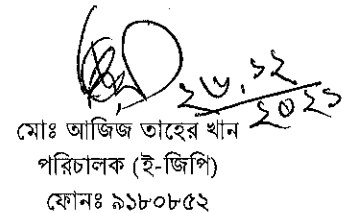 ২৬.১২
২০২১
মোঃ আজিজ তাহের খান
পরিচালক (ই-জিপি)
ফোনঃ ৯১৮০৮৫২